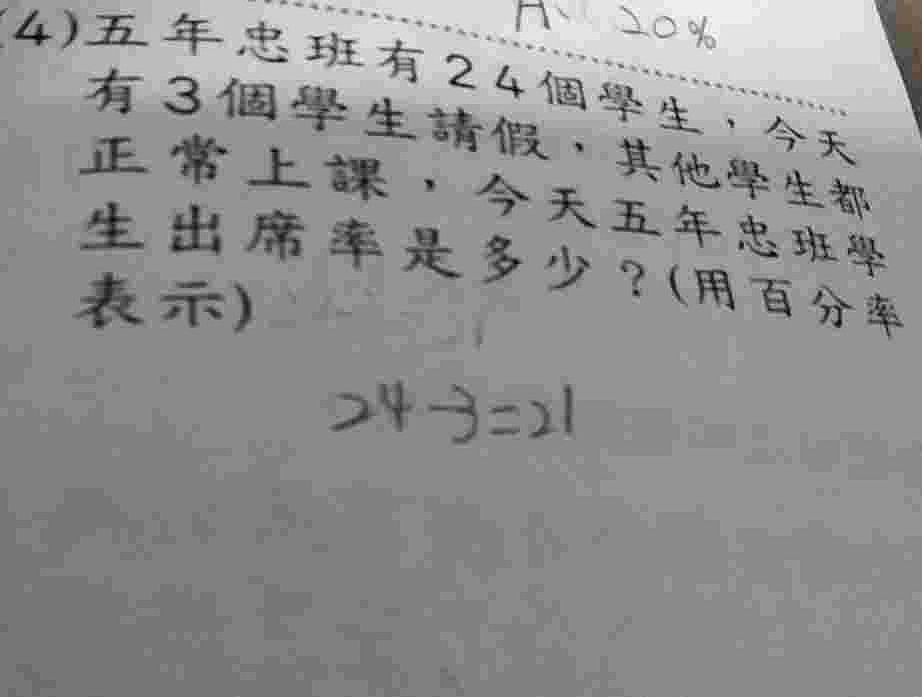 A、20%
(4)五年忠班有24個學生，今天
有3個學生請假，其他學生都
正常上課，今天五年忠班學
生出席率是多少？(用百分率
表示)
24-3=21